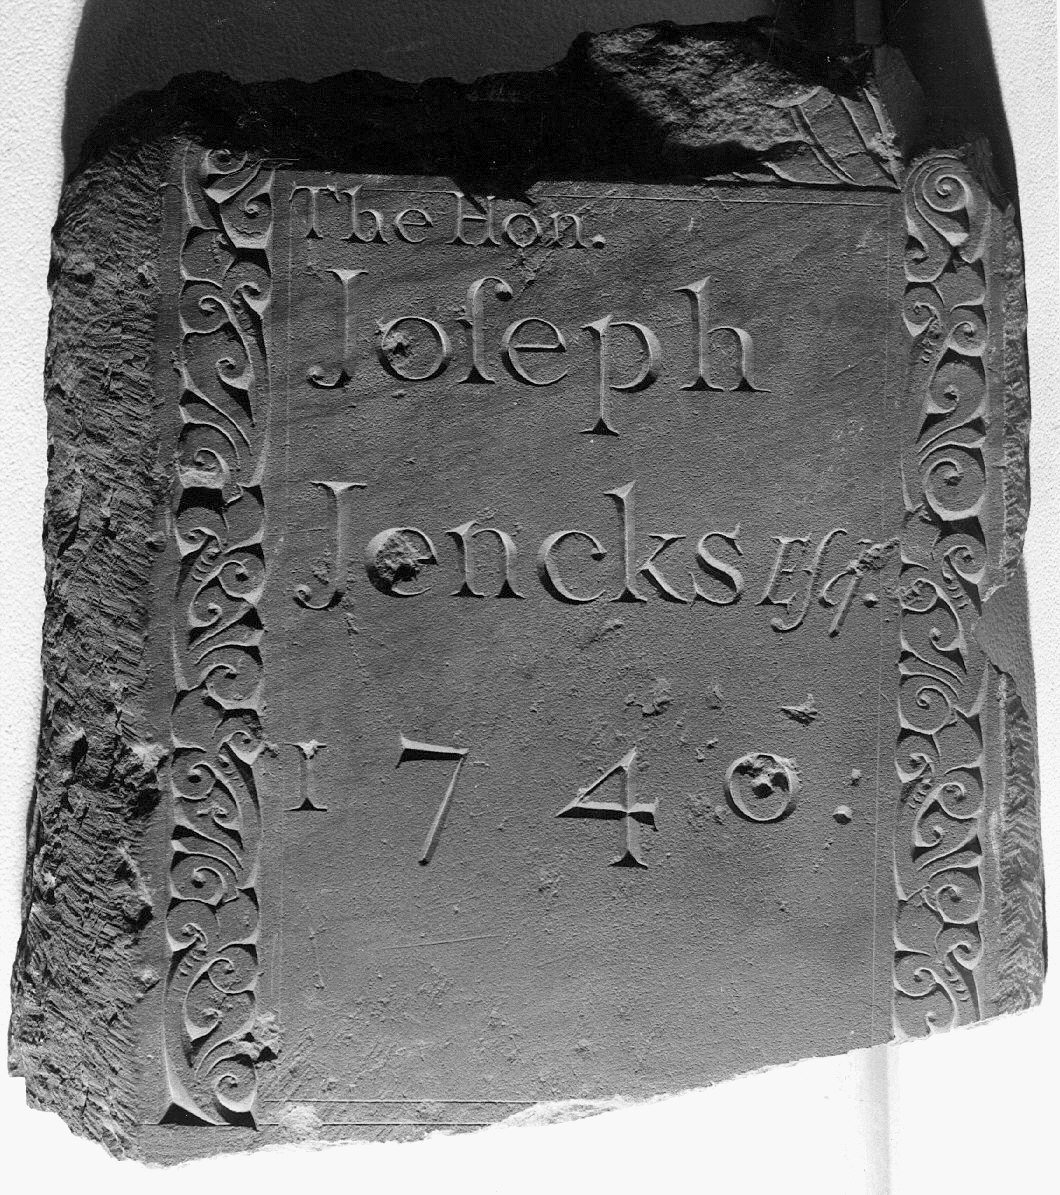 The Hon.
Joſeph
Jencks Eſq.
1740.